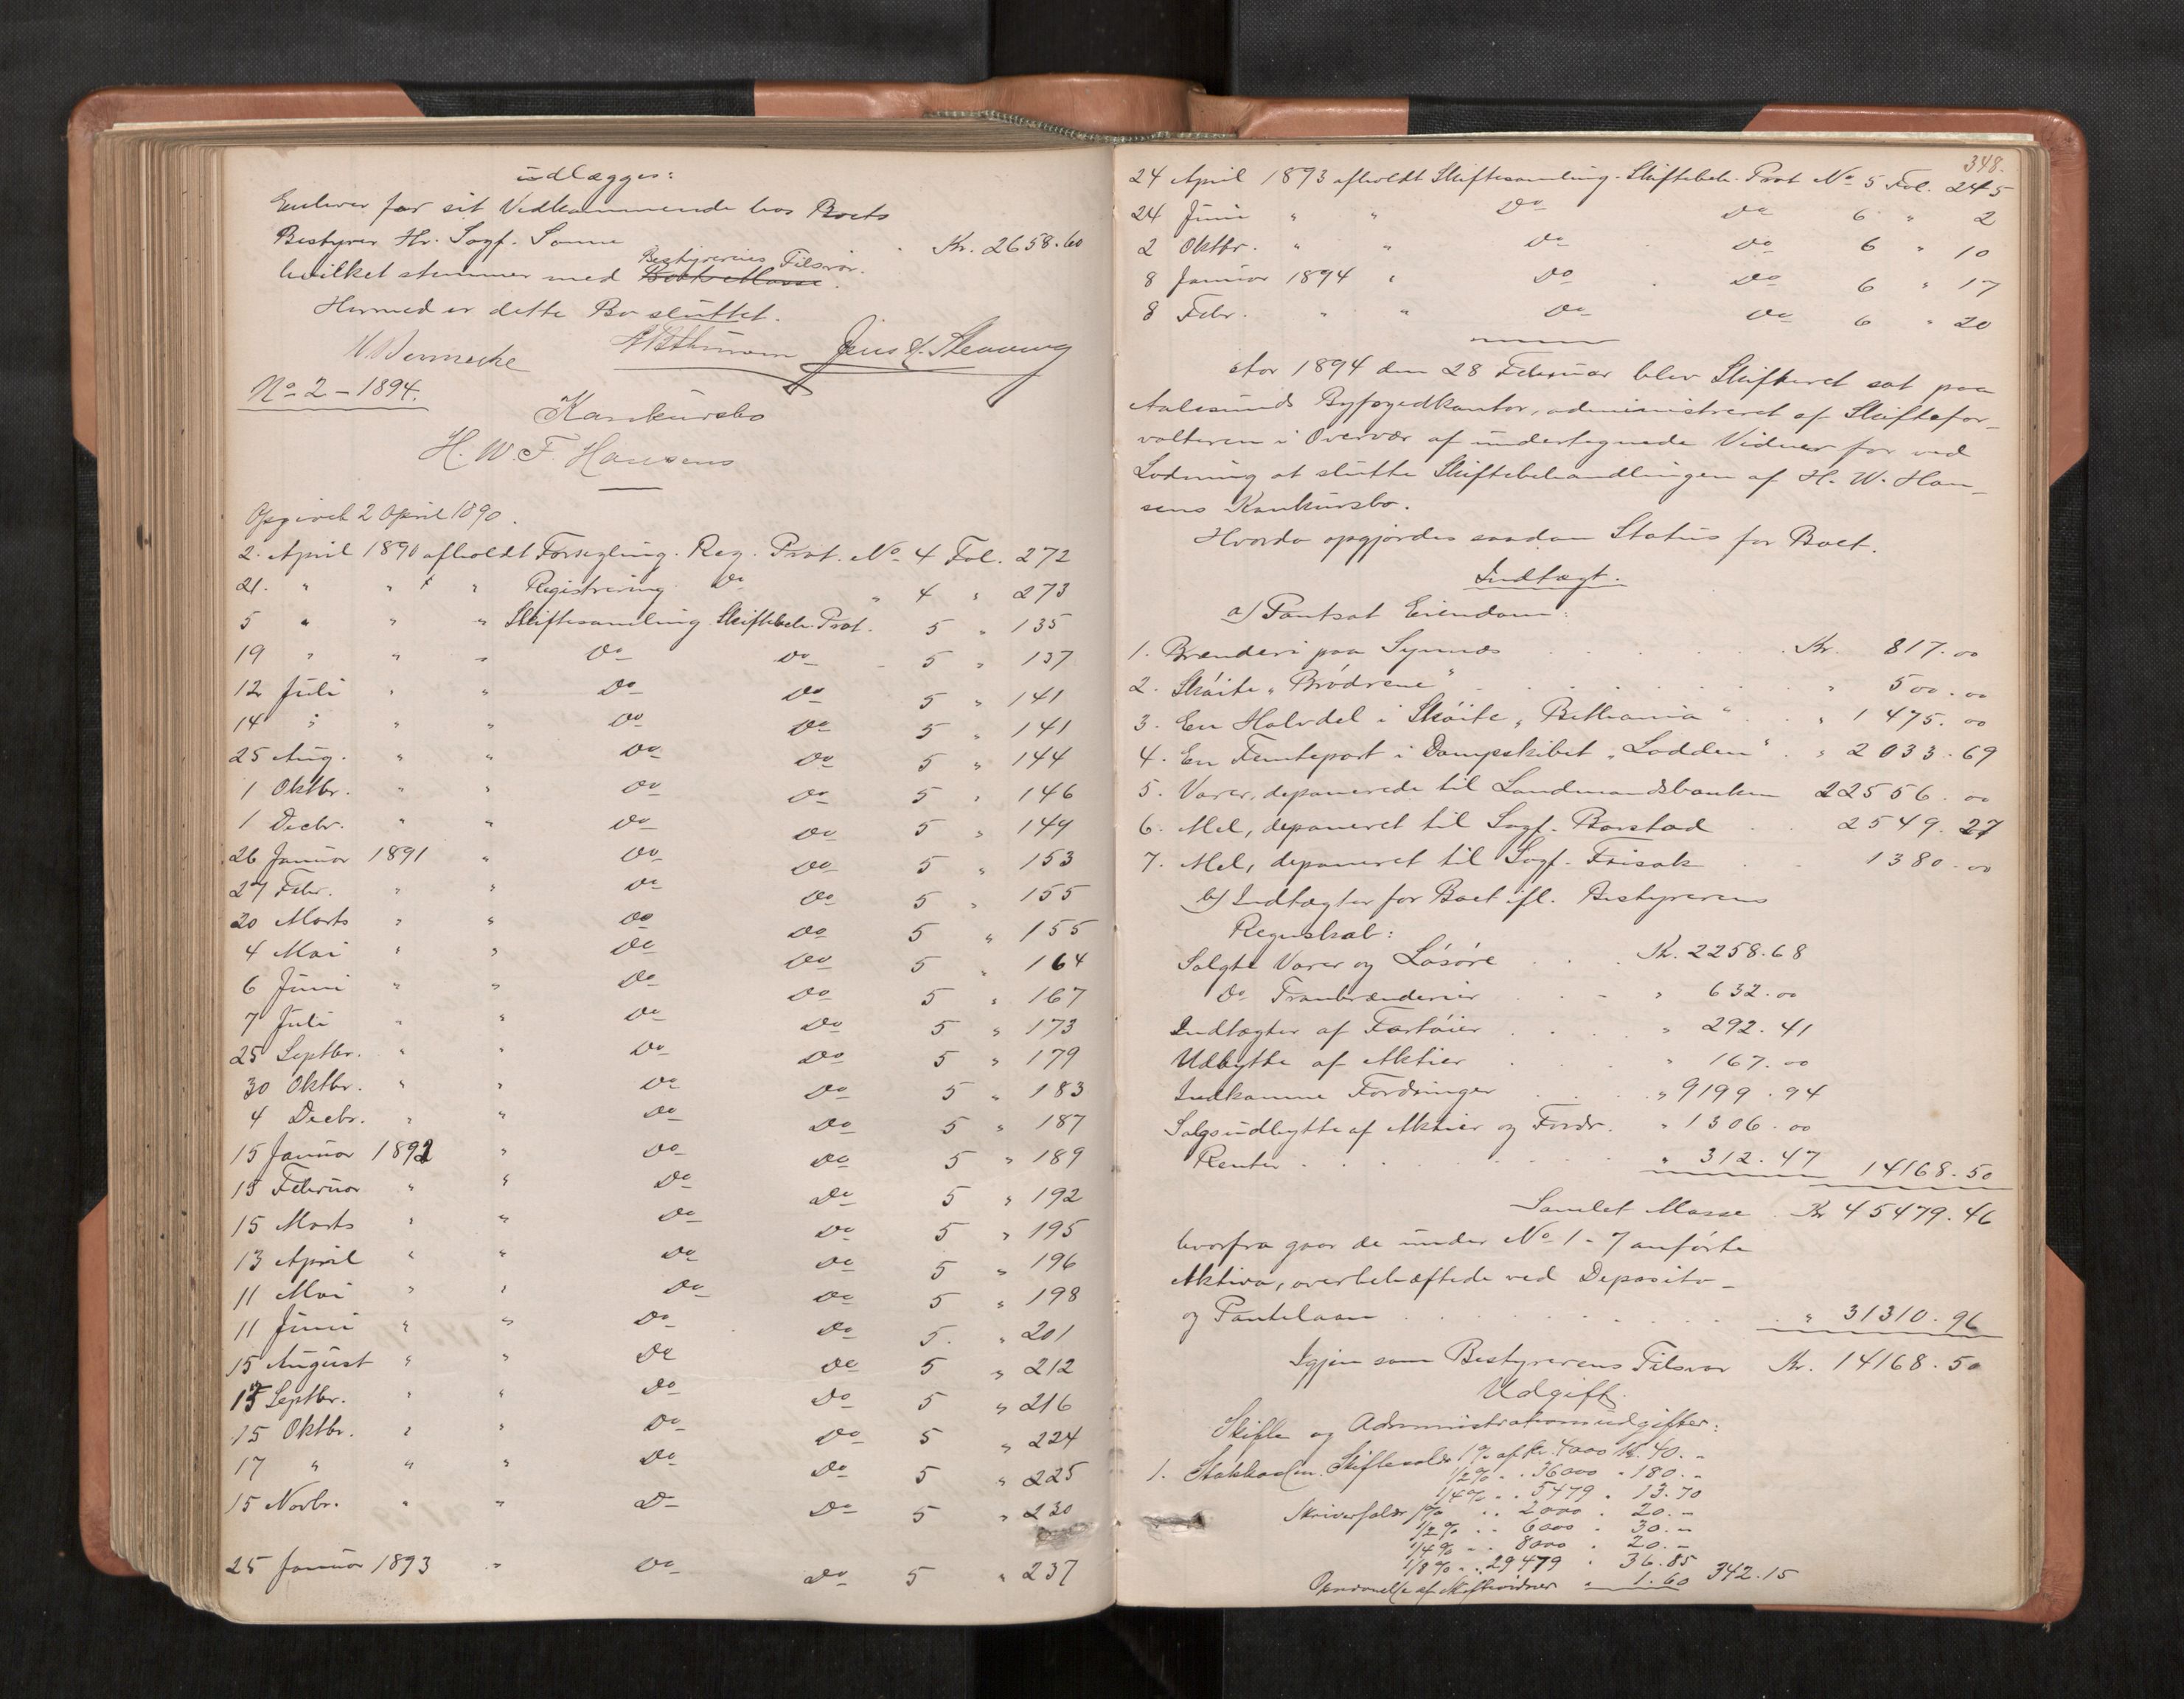 udlægges:
Enhver for sit Vedkommende hos Boets
Bestyrer Hr. Sagf. Sanne . Kr. 2658.60
Bestyrerens Tilsvar.
hvilket stemmer med Boets Masse.
Hermed er dette Bo sluttet.
Jens A. Stenvaag
No 2 – 1894.
Konkursbo
H. W. F. Hansens
Opgivet 2 April 1890.
2. April 1890 afholdt Forsegling. Reg. Prot. No 4 Fol. 272
21. " " " Registrering Do " 4 " 273
5 " " " Skiftesamling Skiftebeh. Prot. 5 " 135
19 " " " Do Do 5 " 137
12 Juli " " Do Do 5 " 141
14 " " " Do Do 5 " 141
25 Aug. " " Do Do 5 " 144
1 Oktbr. " " Do Do 5 " 146
1 Decbr. " " Do Do 5 " 149
26 Januar 1891 " Do Do 5 " 153
27 Febr. " " Do Do 5 " 155
20 Marts " " Do Do 5 " 155
4 Mai " " Do Do 5 " 164
6 Juni " " Do Do 5 " 167
7 Juli " " Do Do 5 " 173
25 Septbr. " " Do Do 5 " 179
30 Oktbr. " " Do Do 5 " 183
4 Decbr. " " Do Do 5 " 187
15 Januar 1892 " Do Do 5 " 189
15 Februar " " Do Do 5 " 192
15 Marts " " Do Do 5 " 195
13 April " " Do Do 5 " 196
11 Mai " " Do Do 5 " 198
11 Juni " " Do Do 5. " 201
15 August " " Do Do 5 " 212
15 Septbr. " " Do Do 5 " 216
15 Oktbr. " " Do Do 5 " 224
17 " " " Do Do 5 " 225
15 Novbr. " " Do Do 5 " 230
25 Januar 1893 " Do Do 5 " 237
348.
24 April 1893 afholdt Skiftesamling. Skiftebeh. Prot No 5 Fol. 245
24 Juni " " Do Do 6 " 2
2 Oktbr. " " Do Do 6 " 10
8 Januar 1894 " Do Do 6 " 17
8 Febr. " " Do Do 6 " 20
Aar 1894 den 28 Februar blev Skifteret sat paa
Aalesunds Byfogedkontor, administreret af Skiftefor-
valteren i Overvær af undertegnede Vidner for ved
Lodning at slutte Skiftebehandlingen af H. W. Han-
sens Konkursbo.
Hvorda opgjordes saadan Status for Boet.
Indtægt.
a) Pantsat Eiendom:
1. Brænderi paa Synnæs . . . Kr. 817.00
2. Skøite „Brødrene" . . . " 500.00
3. En Halvdel i Skøite „Bethania" . . " 1475.00
4. En Femtepart i Dampskibet „Lodden" . " 2033.69
5. Varer, deponerede til Landmandsbanken 22556.00
6. Mel, deponeret til Sagf. Barstad . . 2549.27
7. Mel, deponeret til Sagf. Frisak . . 1380.00
b) Indtægter for Boet ifl. Bestyrerens
Regnskab:
Solgte Varer og Løsøre . . . Kr. 2258.68
Do Tranbrænderier . . " 632.00
Indtægter af Fartøier . . " 292.41
Udbytte af Aktier . . " 167.00
Indkomne Fordringer . . " 9199.94
Salgsudbytte af Aktier og Fordr. " 1306.00
Renter . . . " 312.47 14168.50
Samlet Masse . Kr 45479.46
hvorfra gaar de under No 1-7 anførte
Aktiva, overbehæftede ved Deposito-
og Pantelaan . . . " 31310.96
Igjen som Bestyrerens Tilsvar Kr. 14168.50
Udgift.
Skifte og Administrationsudgifter:
1. Skiftesalær 1% af kr. 4000 Kr. 40.-
1/2% " " 36000 " 180.-
1/4% " " 5479 " 13.70
Skriversalær 1% " " 2000 " 20.-
1/2% " " 6000 " 30.-
1/4% " " 8000 " 20.-
1/8% " " 29479 " 36.85
af Skiftevidner " 1.60 342.15